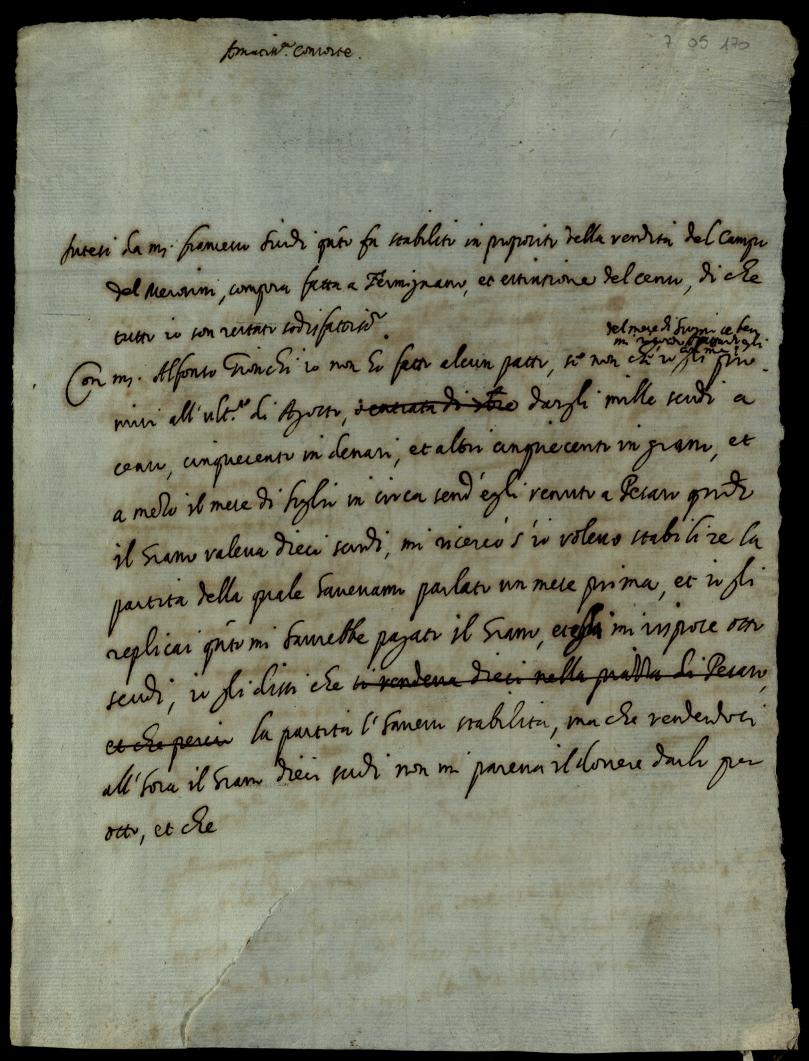 7 05 170
Amatiss.ª consorte.
Intesi da ms. francesco Guidi qnto fu stabilito in proposito della vendita del Campo
del compra fatta a Fermignano, et estinsione del censo, di che
tutto io son restato
del mese di Giugni
mi
Con ms. Alfonso io non ho fatto alcun patto, se non che io gli
all'ult.mo di Agosto, o entrata di dargli mille scudi a
censo, cinquecento in denari, et altri cinquecento in grano, et
a mezo il mese di luglio in circa send'egli venuto a Pesaro
il grano valeva dieci scudi, mi ricercò s'io volevo stabilire la
partita della quale havevamo parlato un mese prima, et io gli
replicai qnto mi havrebbe pagato il grano, et egli mi rispose otto
scudi, io gli dissi che si vendeva dieci nella piazza di Pesaro,
et che perciò la partita l'havevo stabilita, ma che vendendosi
all'hora il grano dieci scudi non mi pareva il dovere darlo per
otto, et che